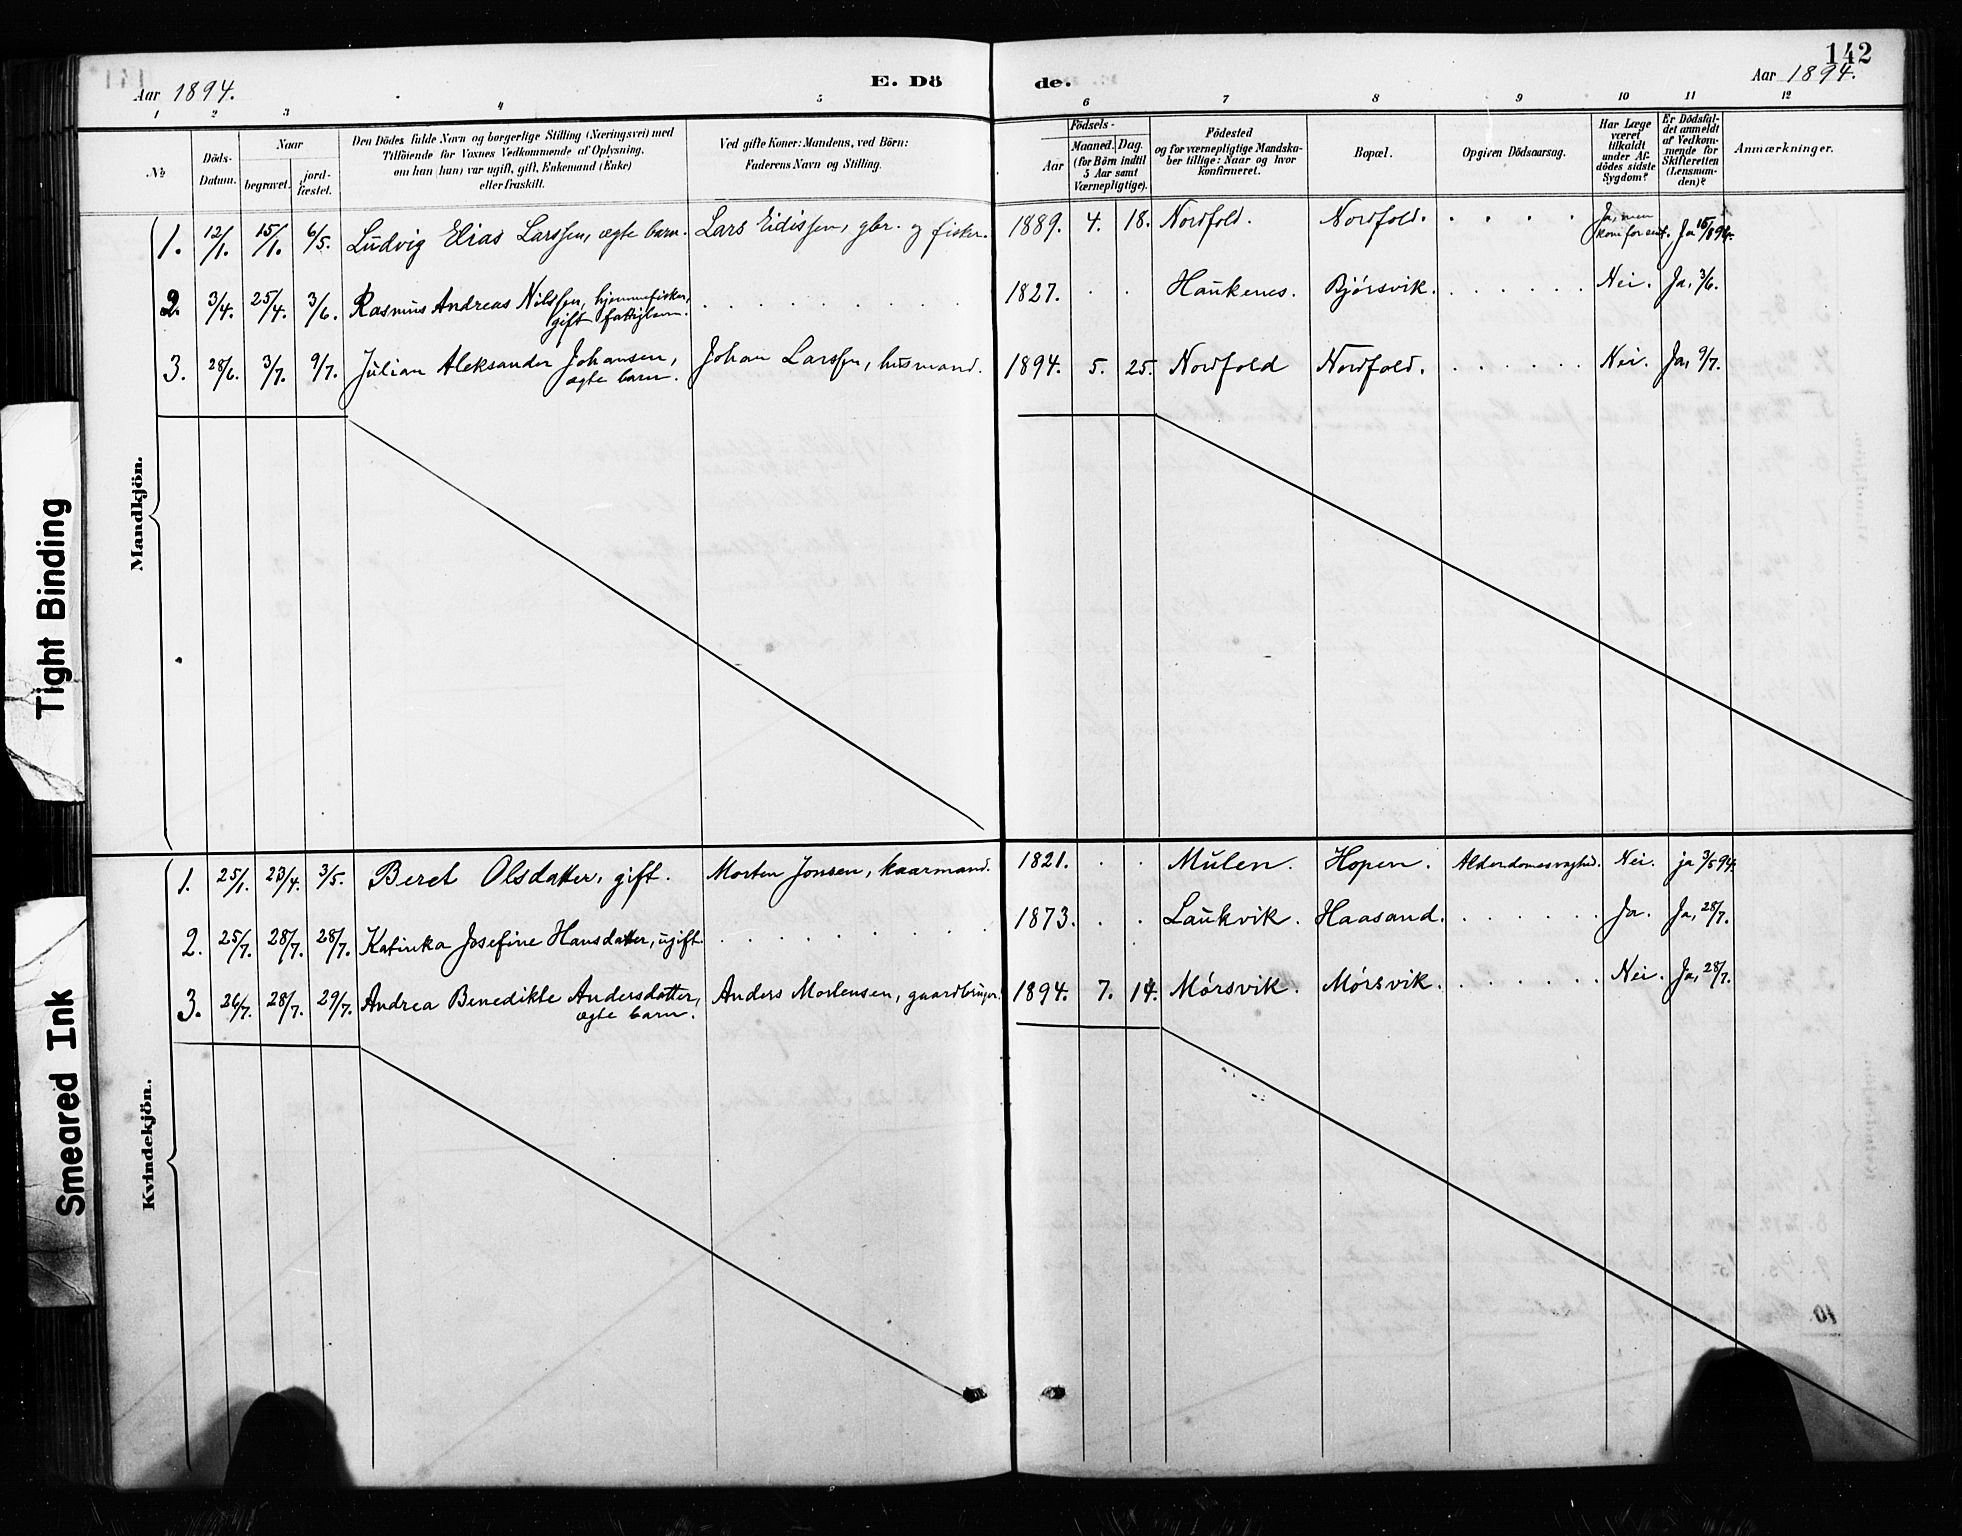 142
Aar 1894.
E. Dödede.
Aar 1894.
1 2 3 4 5 6 7 8 9 10 11 12
№
Döds-Datum.
Naar
begravet.
jord-fæstet.
Den Dödes fulde Navn og borgerlige Stilling (Næringsvei) med
Tilföiende for Voxnes Vedkommende af Oplysning,
om han (hun) var ugift, gift, Enkemand (Enke)
eller fraskilt.
Ved gifte Koner: Mandens, ved Börn:
Faderens Navn og Stilling.
Födsels-
Aar
Maaned. Dag.
(for Börn indtil
5 Aar samt
Værnepligtige).
Födested
og for værnepligtige Mandska-
ber tillige: Naar og hvor
konfirmeret.
Bopæl.
Opgiven Dödsaarsag.
Har Læge
været
tilkaldt
under Af-
dödes sidste
Sygdom?
Er Dödsfal-
det anmeldt
af Vedkom-
mende for
Skifteretten
(Lensman-
den)?
Anmærkninger.
Mandkjön.
1. 12/1. 15/1. 6/5. Ludvig Elias Larssen, ægte barn. Lars Eidissen, gbr. og fisker. 1889. 4. 18. Nordfold. Nordfold. . . . . Ja, men kom for sent. Ja 15/1 894.
2. 3/4. 25/4. 3/6. Rasmus Andreas Nilssen, hjemmefisker, gift fattiglem. . . . . 1827. . . Haukenes. Bjørsvik. . . . . Nei. Ja, 3/6.
3. 28/6. 3/7. 9/7. Julian Aleksander Johansen, ægte barn. Johan Larssen, husmand. 1894. 5. 25. Nordfold Nordfold. . . . . Nei. Ja, 9/7.
Kvindekjön.
1. 25/1. 23/4. 3/5. Beret Olsdatter, gift. Morten Jonsen, kaarmand. 1821. . . Mulen. Hopen. Alderdomssvaghed. Nei. ja 3/5 94.
2. 25/7. 28/7. 28/7. Katinka Josefine Hansdatter, ugift. . . . . 1873. . . Laukvik. Haasand. . . . . Ja. Ja, 28/7.
3. 26/7. 28/7. 29/7. Andrea Benedikte Andersdatter, ægte barn. Anders Mortensen, gaardbruger. 1894. 7. 14. Mørsvik. Mørsvik. . . . . Nei. Ja, 28/7.
Tight Binding
Smeared Ink